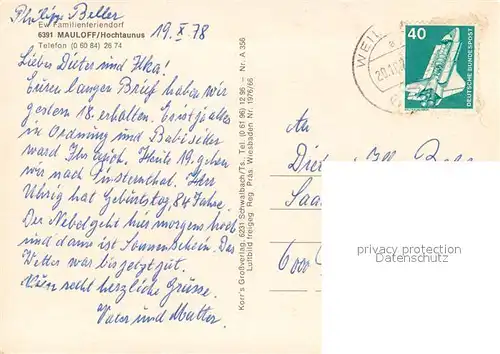 Philipp Beller
Ev. Familienferiendorf
6391 MAULOFF/Hochtaunus
Telefon (0 60 84) 26 74
19. X 78
Lieber Dieter und Ilka!
Euren langen Brief haben wir
gestern 18. erhalten. Ernst ja alles
in Ordnung und Babisiker
ward Ihr auch. Heute 19. gehen
wir nach Finsternthal. Herr
Uhrig hat Geburtstag, 84 Jahre.
Der Nebel geht hier morgens hoch
und dann ist Sonnenschein. Das
Wetter war bis jetzt gut.
Nun recht herzliche Grüsse.
Vater und Mutter.
Korr's Großverlag, 6231 Schwalbach/Ts. Tel. (0 61 96) 12 96 – Nr. A 356
Luftbild freigeg. Reg. Präs. Wiesbaden Nr. 1976/66
WEIL
20.10
40
DEUTSCHE BUNDESPOST
An
Saa
6000
privacy protection
Datenschutz